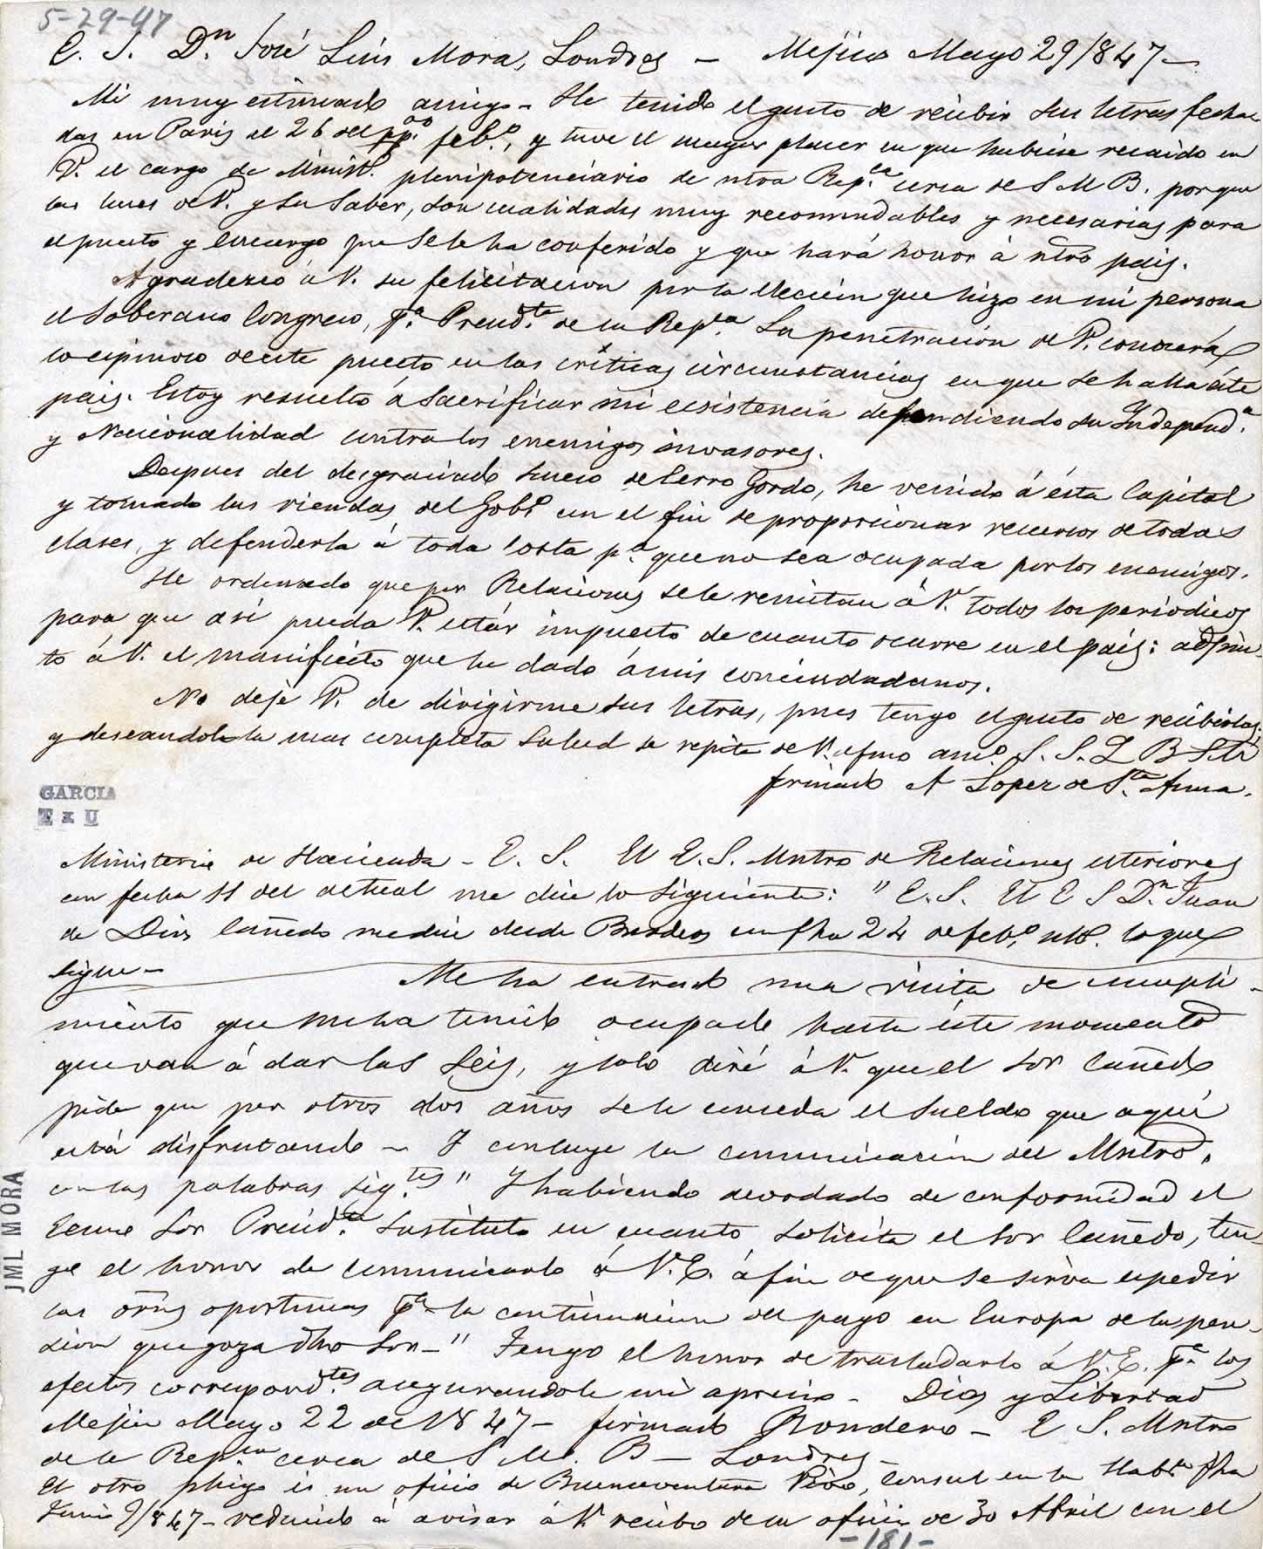 5-29-47
E. S. Dn José Luis Mora, Londres — Mejico Mayo 29/847—
Mi muy estimado amigo - He tenido el gusto de recibir sus letras fecha-
das en Paris el 26 del pp.do feb.o, y tuve el mayor placer en que hubiese recaido en
V. el cargo de Minist.o plenipotenciario de ntra Rep.ca cerca de S M B. porque
las luces de V. y su saber, son cualidades muy recomendables y necesarias para
el puesto y encargo que se le ha conferido y que hará honor á ntro pais.
Agradezco á V. su felicitacion por la eleccion que hizo en mi persona
el Soberano Congreso, p.a Presid.te de la Rep.ca La penetracion de V. conocerá
lo espinoso de este puesto en las criticas circunstancias en que se halla éste
pais. Estoy resuelto á sacrificar mi ecsistencia defendiendo su Independ.a
y Nacionalidad contra los enemigos invasores.
Despues del desgraciado suceso de Cerro Gordo, he venido á ésta Capital
y tomado las riendas del Gob.o con el fin de proporcionar recursos de todas
clases, y defenderla á toda costa p.a que no sea ocupada por los enemigos.
He ordenado que por Relaciones se le remitan á V. todos los periodicos
para que asi pueda V. estár impuesto de cuanto ocurre en el pais: adjun-
to á V. el manifiesto que he dado á mis conciudadanos.
No deje V. de dirigirme sus letras, pues tengo el gusto de recibirlas;
y deseandole la mas completa salud se repite de V. afmo am.o S. S. Q B S M
firmado A Lopez de S.ta Anna.
GARCIA
Ministerio de Hacienda - E. S. El E. S. Mntro de Relaciones esteriores
con fecha 11 del actual me dice lo siguiente: "E. S. El E S D.n Juan
de Dios Cañedo me dice desde Burdeos en fha 24 de feb.o ult.o lo que
sigue—
Me ha entrado una visita de cumpli-
miento que me ha tenido ocupado hasta éste momento
que van á dar las seis, y solo diré á V. que el Sor Cañedo
pide que por otros dos años se le conceda el sueldo que aqui
está disfrutando — Y concluye la comunicacion del Mntro.
con las palabras sig.tes "Y habiendo acordado de conformidad el
Ecsmo Sor Presid.te Sustituto en cuanto solicita el Sor Cañedo, ten-
go el honor de comunicarlo á V. E. á fin de que se sirva espedir
las orns oportunas p.a la continuacion del pago en Europa de la pen-
sion que goza dho Sor—" Tengo el honor de trasladarlo á V. E. p.a los
efectos correspond.tes asegurandole mi aprecio - Dios y Libertad
Mejico Mayo 22 de 1847— firmado Rondero — E S. Mntro
de la Rep.ca cerca de S M. B — Londres—
El otro pliego es un oficio de Buenaventura Vivó, Consul en la Hab.a fha
Junio 9/847— reducido á avisar á V. recibo de su oficio de 30 Abril con el
-181-
JML MORA